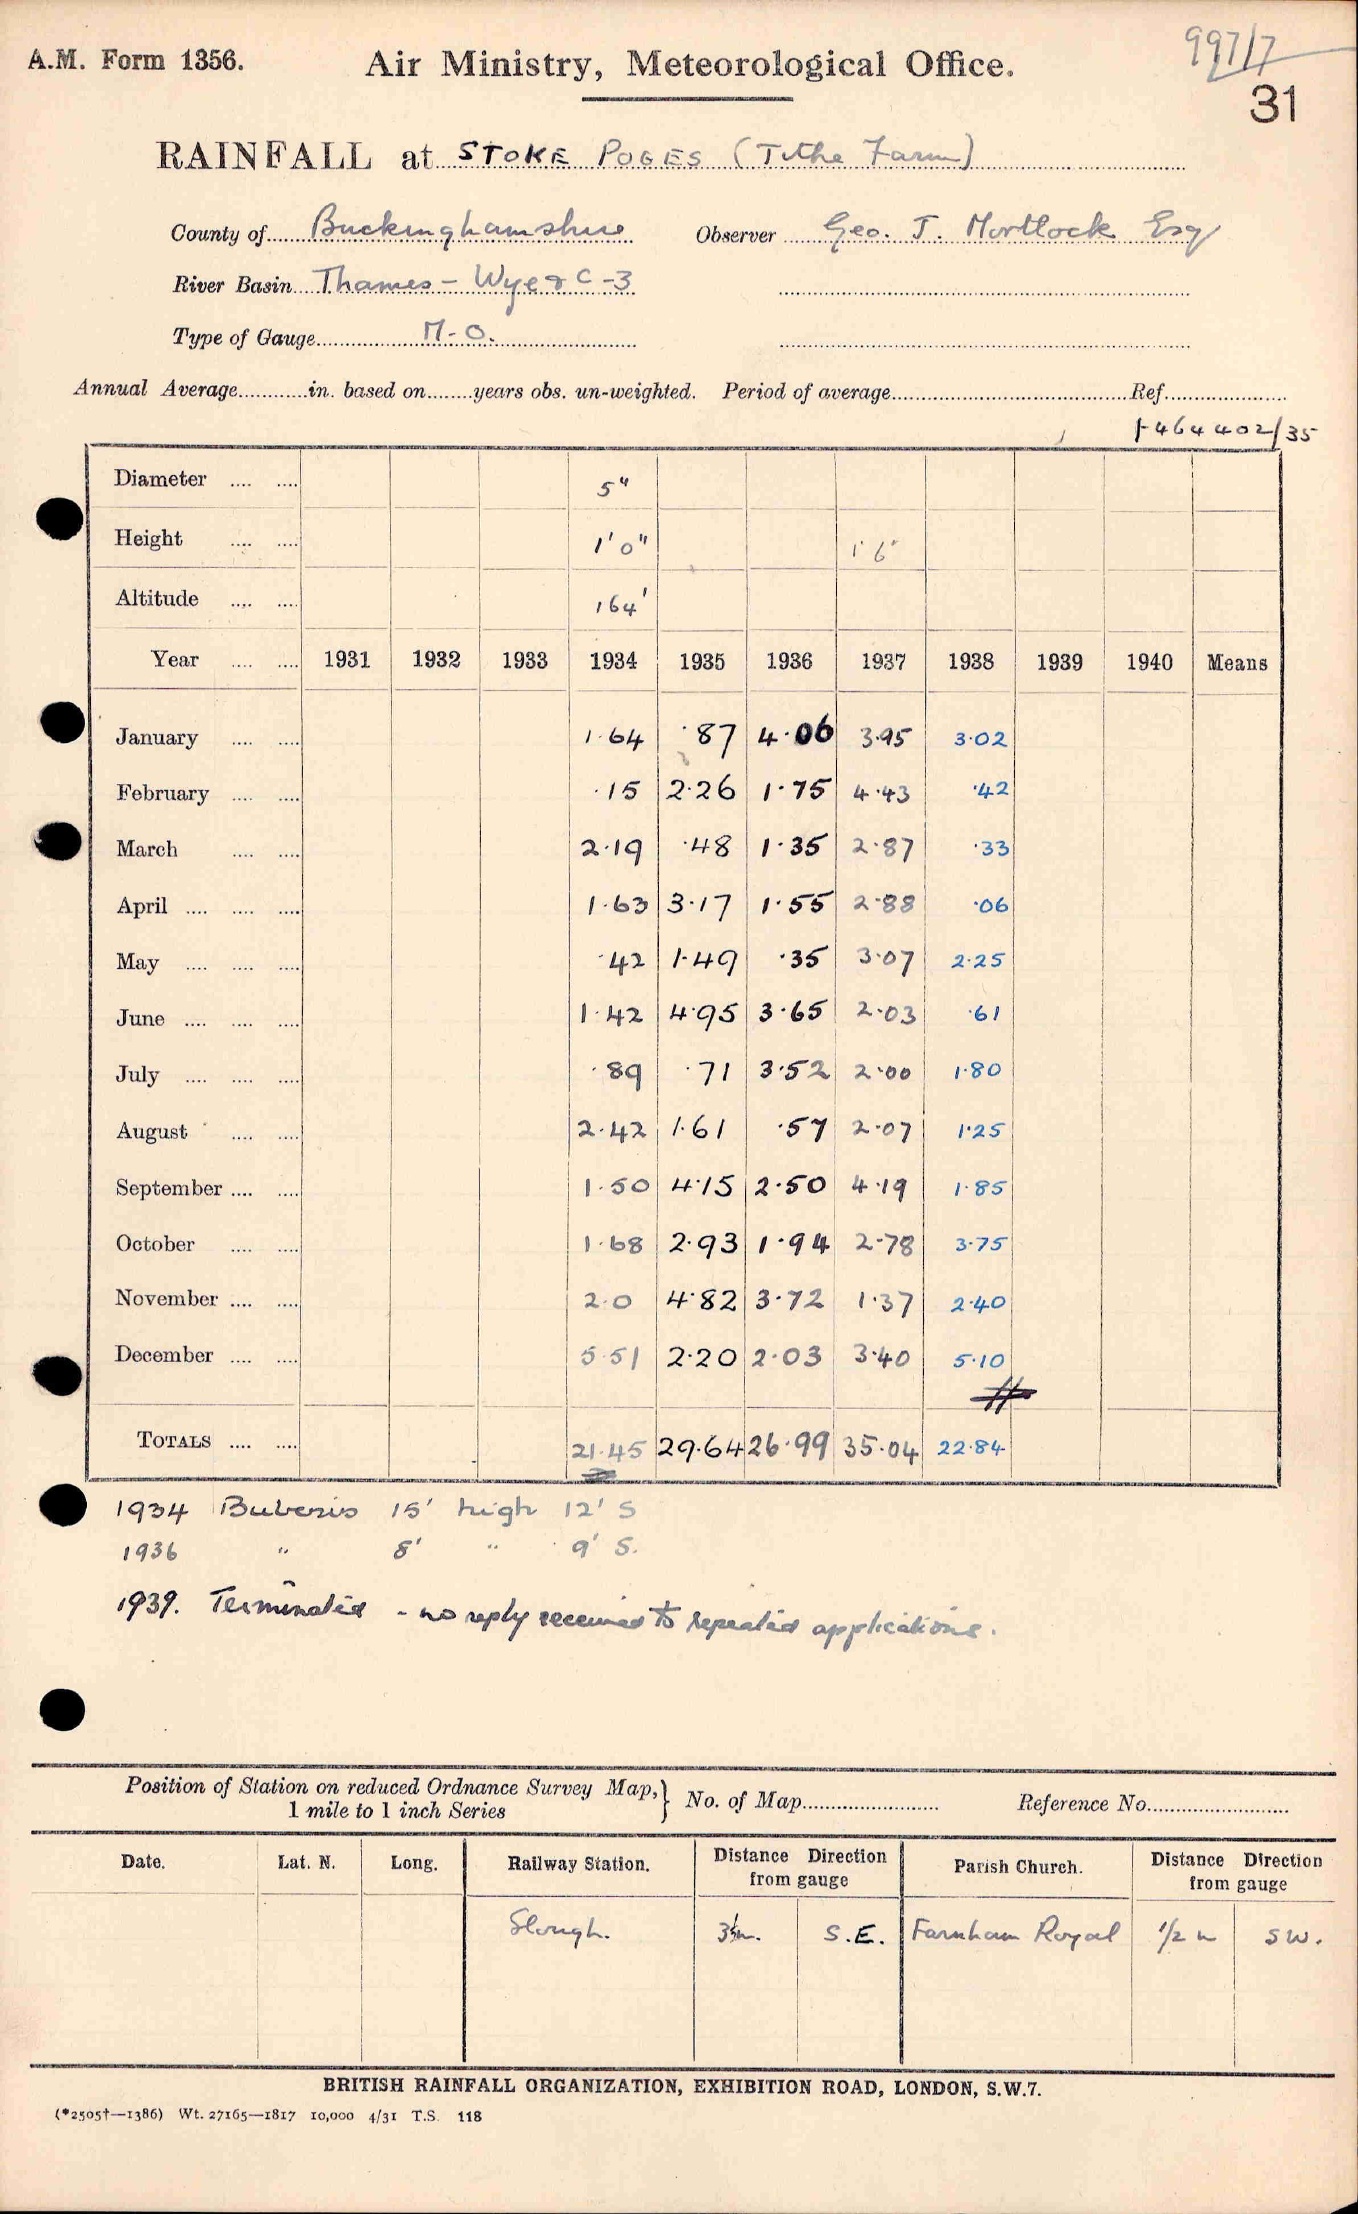 A.M. Form 1356.
Air Ministry, Meteorological Office.
997/7
31
RAINFALL at STOKE POGES (Tithe Farm)
County of Buckinghamshire Observer Geo. J. Mortlock Esq
River Basin Thames - Wye & C -3
Type of Gauge M-O.
Annual Average............in. based on........years obs. un-weighted. Period of average.......................................Ref.....................
464402/35
Diameter .... .... 5"
Height .... .... 1'0" 1'6"
Altitude .... .... 164'
Year .... .... 1931 1932 1933 1934 1935 1936 1937 1938 1939 1940 Means
January .... .... 1·64 ·87 4·06 3·95 3·02
February .... .... ·15 2·26 1·75 4·43 ·42
March .... .... 2·19 ·48 1·35 2·87 ·33
April .... .... .... 1·63 3·17 1·55 2·88 ·06
May .... .... .... ·42 1·49 ·35 3·07 2·25
June .... .... .... 1·42 4·95 3·65 2·03 ·61
July .... .... .... ·89 ·71 3·52 2·00 1·80
August .... .... 2·42 1·61 ·57 2·07 1·25
September .... .... 1·50 4·15 2·50 4·19 1·85
October .... .... 1·68 2·93 1·94 2·78 3·75
November .... .... 2·0 4·82 3·72 1·37 2·40
December .... .... 5·51 2·20 2·03 3·40 5·10
TOTALS .... .... 21·45 29·64 26·99 35·04 22·84
1934 15' high 12' S
1936 " 8' " 9' S.
1939. Terminated - no reply received to repeated applications.
Position of Station on reduced Ordnance Survey Map, } No. of Map........................ Reference No.........................
1 mile to 1 inch Series
Date. Lat. N. Long. Railway Station. Distance Direction from gauge Parish Church. Distance Direction from gauge
Slough. S.E. Farnham Royal 1/2 SW.
BRITISH RAINFALL ORGANIZATION, EXHIBITION ROAD, LONDON, S.W.7.
(*2505†—1386) Wt. 27165—1817 10,000 4/31 T.S. 118